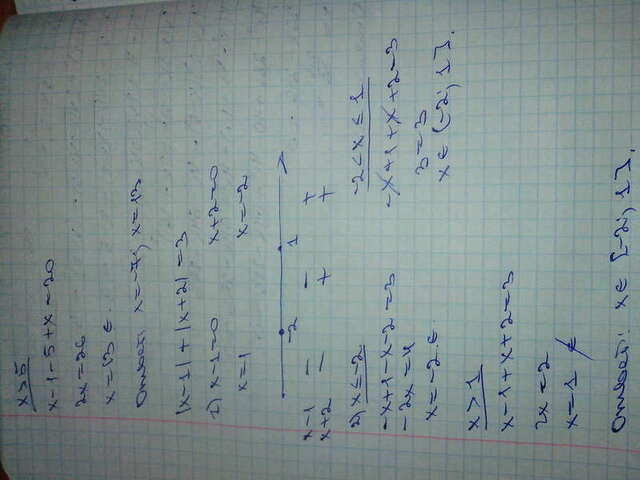 x>5
x-1-5+x=20
2x=26
x=13 ∈
Ответ: x=-7; x=13
|x-1|+|x+2|=3
1) x-1=0 x+2=0
x=1 x=-2
-2 1
x-1 − − +
x+2 − + +
2) x≤-2 -2<x≤1
-x+1-x-2=3 -x+1+x+2=3
-2x=4 3=3
x=-2 ∈ x∈(-2; 1].
x>1
x-1+x+2=3
2x=2
x=1 ∉
Ответ: x∈[-2; 1].